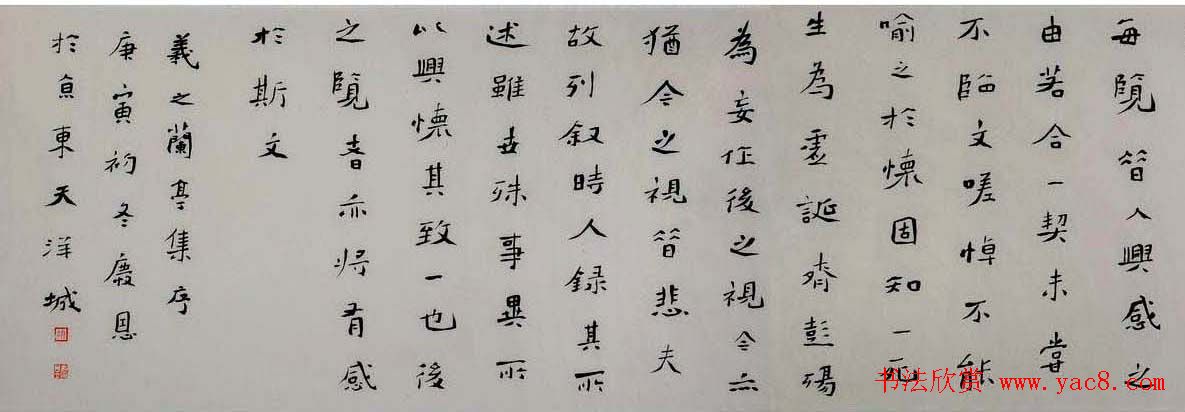 每覽昔人興感之
由若合一契未嘗
不臨文嗟悼不能
喻之於懷固知一死
生為虛誕齊彭殤
為妄作後之視今亦
猶今之視昔悲夫
故列叙時人録其所
述雖世殊事異所
以興懷其致一也後
之覽者亦將有感
於斯文
羲之蘭亭集序
庚寅初冬慶恩
於京東天洋城
书法欣赏 www.yac8.com